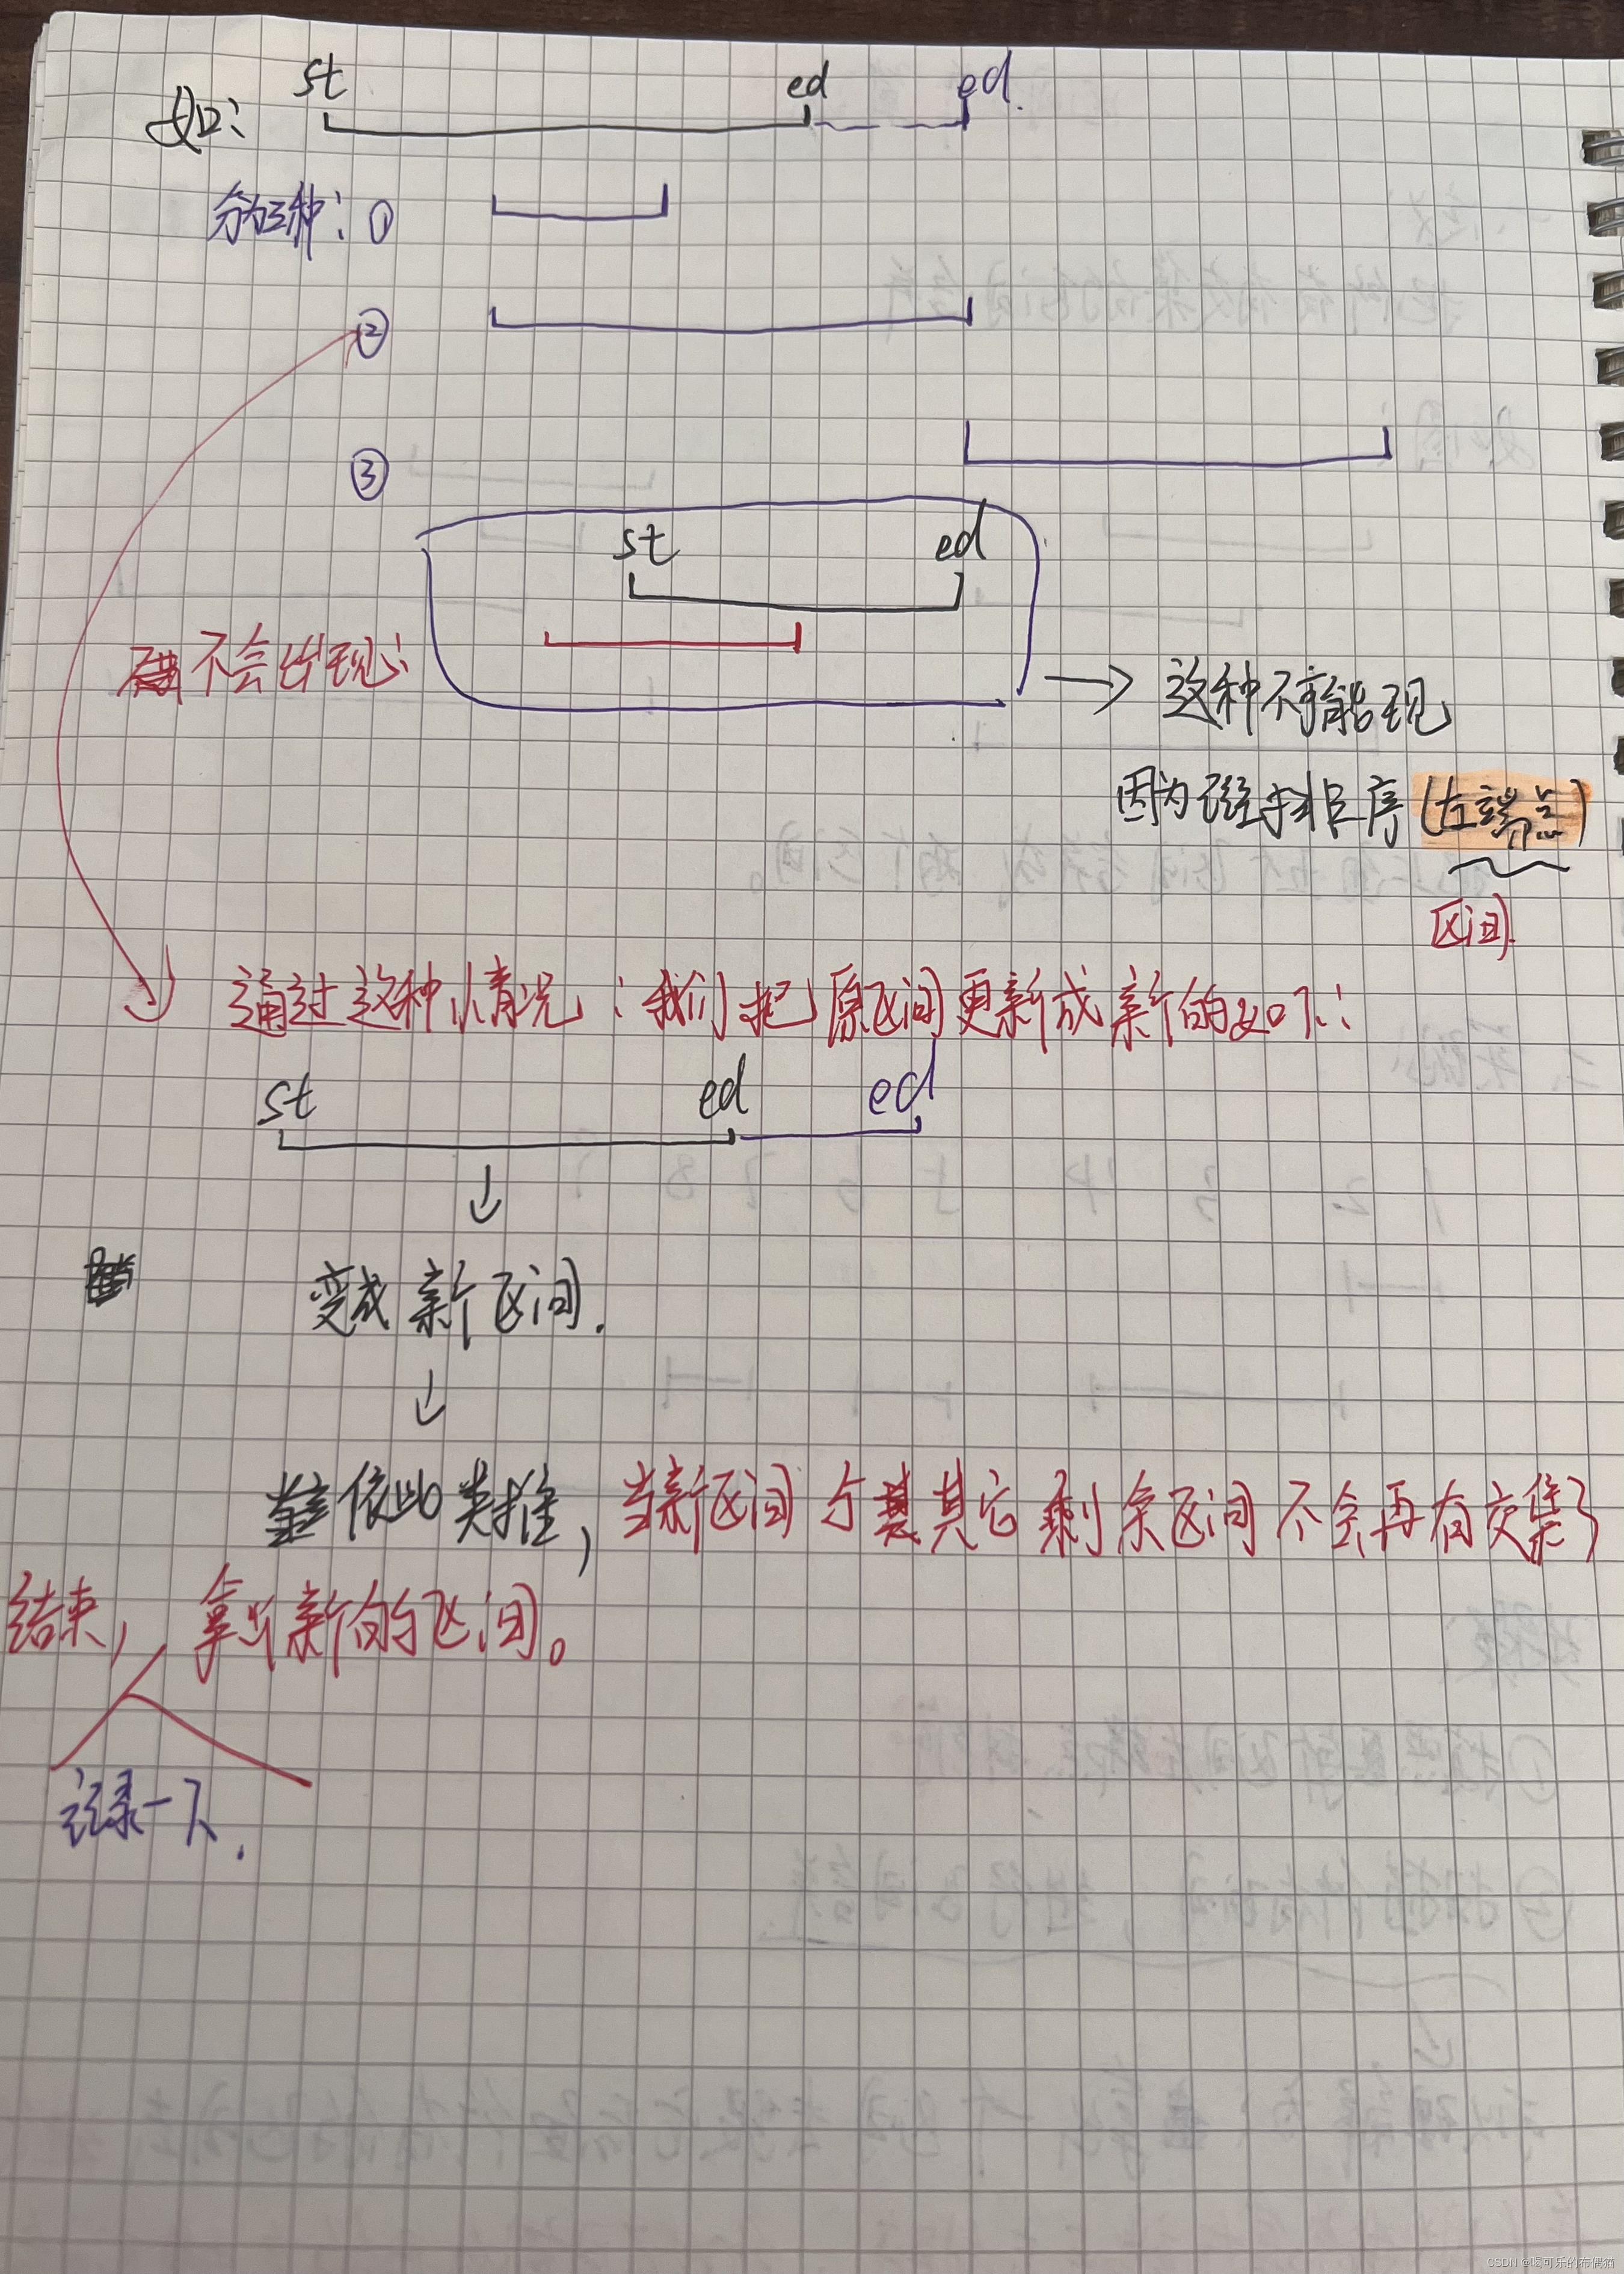 st ed ed.
如:
分为三种: ①
②
③
st ed
不会出现:
→ 这种不可能出现
因为已经手排序(左端点)
区间.
通过这种情况:我们把原区间更新成新的如下:
st ed ed
↓
变成新区间.
↓
依此类推,当新区间与其它剩余区间不会再有交集了
结束,拿出新的区间。
记录一下.
CSDN @喝可乐的布偶猫